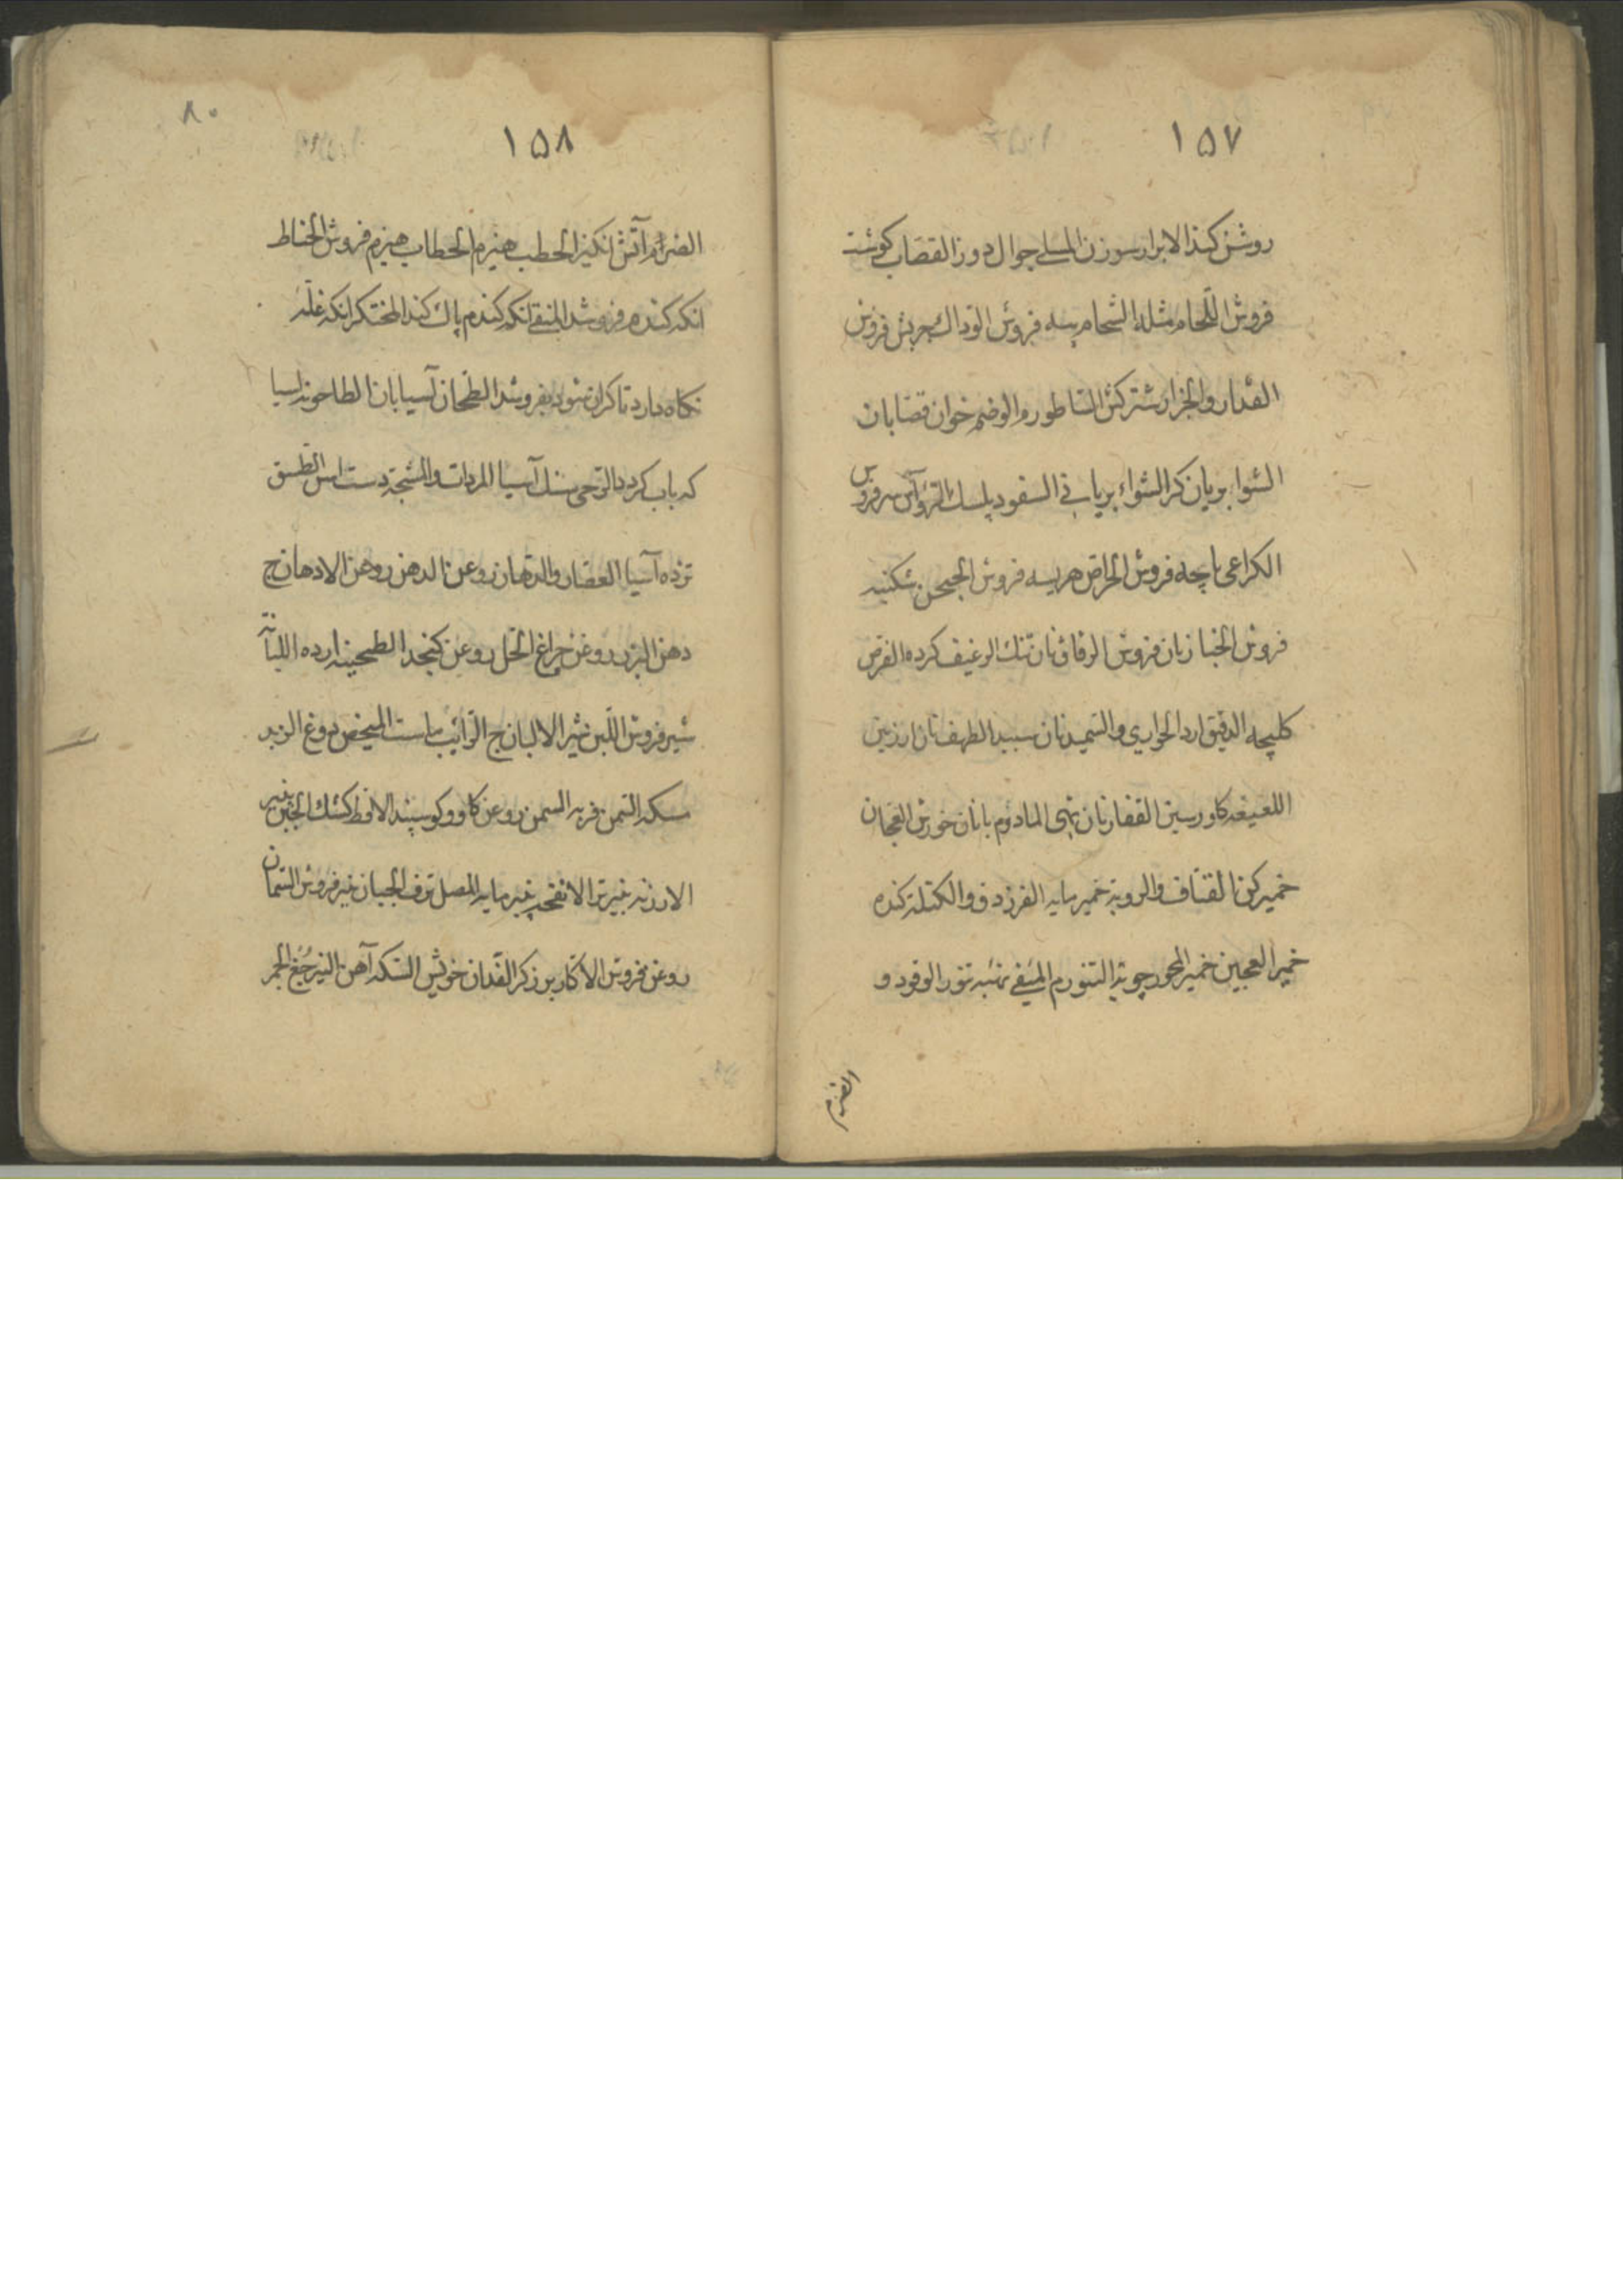 ١٥٧
روشن کند الابرار سوزن المسلي جوال دوز القصاب کوشت
فروش اللّحام مثله الشحام پیه فروش الودّاك چربش فروش
القدار والجزار شترکش الساطور م الوضم خوان قصّابان
الشوا بریان کر الشواء بریانی السفود بلسك الروّاس سرفروش
الکراعی پاچه فروش الهرّاس هریسه فروش شکنبه
فروش الخباز نان فروش الرقاق نان تنك الرغیف کرده القرص
کلیچه الدقیق ارد الحواري والسمید نان سپید الطهف نان ارزین
کاورسین القفار نان تهی المأدوم با نان خورش العجان
خمیر کن والروبة خمیر مایه الفرزدق والکتلة کنده
خمیر العجین خمیر المحور چوبة التنور م تنور الوقود و
الضرم
١٥٨
٨٠
الضرام آتش انکیز الحطب هیزم الحطاب هیزم فروش الحناط
انکه کندم فروشد المنقي انکه کندم پاك کند المحتکر انکه غلّه
نکاه دارد تا کران شود بفروشد الطحّان آسیابان الطاحونه آسیا
که بآب کردد الرّحی سنك آسیا المردات والشجّة دست اس
آسیا العصّار والدهّان روغن الدهن روغن الادهان ج
دهن البزر روغن چراغ الخل روغن کنجد الطحینه ارده اللبّان
شیر فروش اللّبن شیر الالبان ج الرّائب ماست المخیض دوغ الزبد
مسکه السّمن فربه السمن روغن کاو و کوسپند الاقط کشك الجبن پنیر
پنیر تر الانفحه پنیر مایه المصل ترف الجبان پنیر فروش السّمان
روغن فروش الاکّار برزکر الفدان خویش السّکه آهن النیر جُغ الجمر